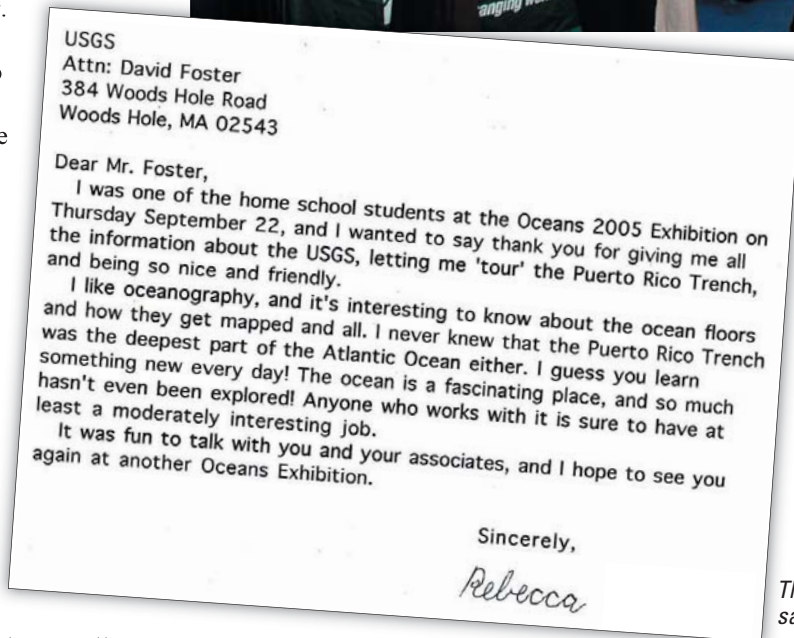 USGS
Attn: David Foster
384 Woods Hole Road
Woods Hole, MA 02543
Dear Mr. Foster,
I was one of the home school students at the Oceans 2005 Exhibition on
Thursday September 22, and I wanted to say thank you for giving me all
the information about the USGS, letting me 'tour' the Puerto Rico Trench,
and being so nice and friendly.
I like oceanography, and it's interesting to know about the ocean floors
and how they get mapped and all. I never knew that the Puerto Rico Trench
was the deepest part of the Atlantic Ocean either. I guess you learn
something new every day! The ocean is a fascinating place, and so much
hasn't even been explored! Anyone who works with it is sure to have at
least a moderately interesting job.
It was fun to talk with you and your associates, and I hope to see you
again at another Oceans Exhibition.
Sincerely,
Rebecca